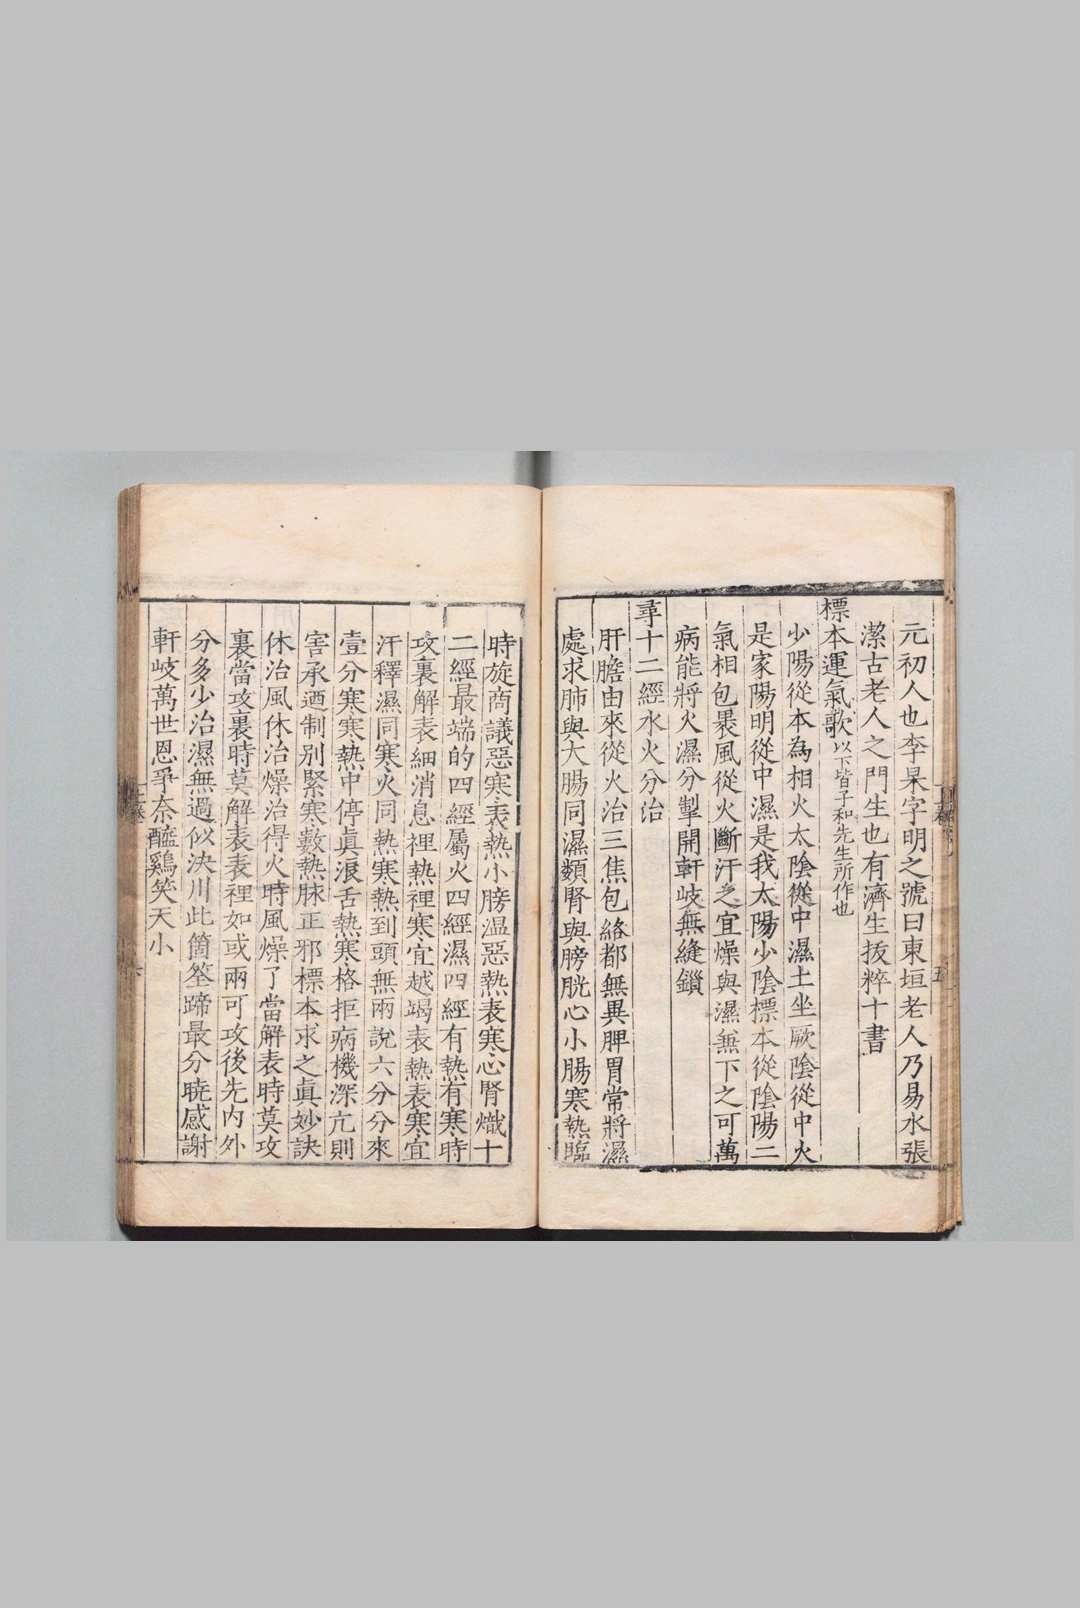 元初人也李杲字明之號曰東垣老人乃易水張
潔古老人之門生也有濟生拔粹十書
標本運氣歌以下皆子和先生所作也
少陽從本為相火太陰從中濕土坐厥陰從中火
是家陽明從中濕是我太陽少陰標本從陰陽二
氣相包褁風從火斷汗之宜燥與濕無下之可萬
病能將火濕分掣開軒岐無縫鎖
尋十二經水火分治
肝膽由來從火治三焦包絡都無異脾胃常將濕
處求肺與大腸同濕類腎與膀胱心小腸寒熱臨
時旋商議惡寒表熱小膀温惡熱表寒心腎熾十
二經最端的四經屬火四經濕四經有熱有寒時
攻裏解表細消息裡熱裡寒宜越竭表熱表寒宜
汗釋濕同寒火同熱寒熱到頭無兩說六分分來
壹分寒寒熱中停真浪舌熱寒格拒病機深亢則
害承迺制别緊寒數熱脉正邪標本求之真妙訣
休治風休治燥治得火時風燥了當解表時莫攻
裏當攻裏時莫解表表裡如或兩可攻後先内外
分多少治濕無過似決川此箇筌蹄最分曉感謝
軒岐萬世恩爭奈醯鷄笑天小